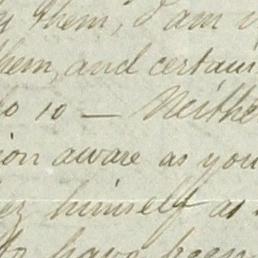 them, I am
them, and certain
to 10 — Neithe
ion aware as you
himself as
to have been